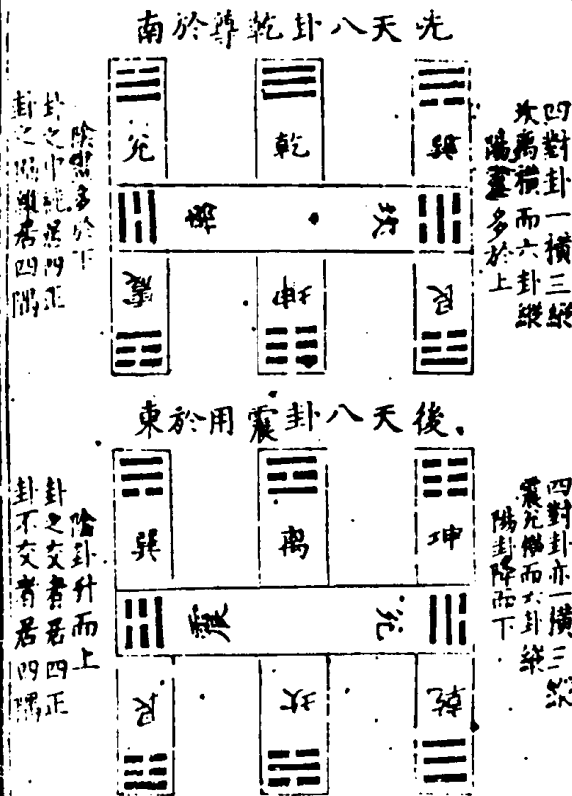 先天八卦乾尊於南
四對卦一橫三縱
坎离橫而六卦縱
陽畫多於上
巽
乾
兌
坎
离
艮
坤
震
陰畫多於下
卦之中純居四正
卦之居四隅
後天八卦震用於東
四對卦亦一橫三縱
震兌橫而六卦縱
陽卦降而下
坤
离
巽
兌
震
乾
坎
艮
陰卦升而上
卦之交者居四正
卦不交者居四隅